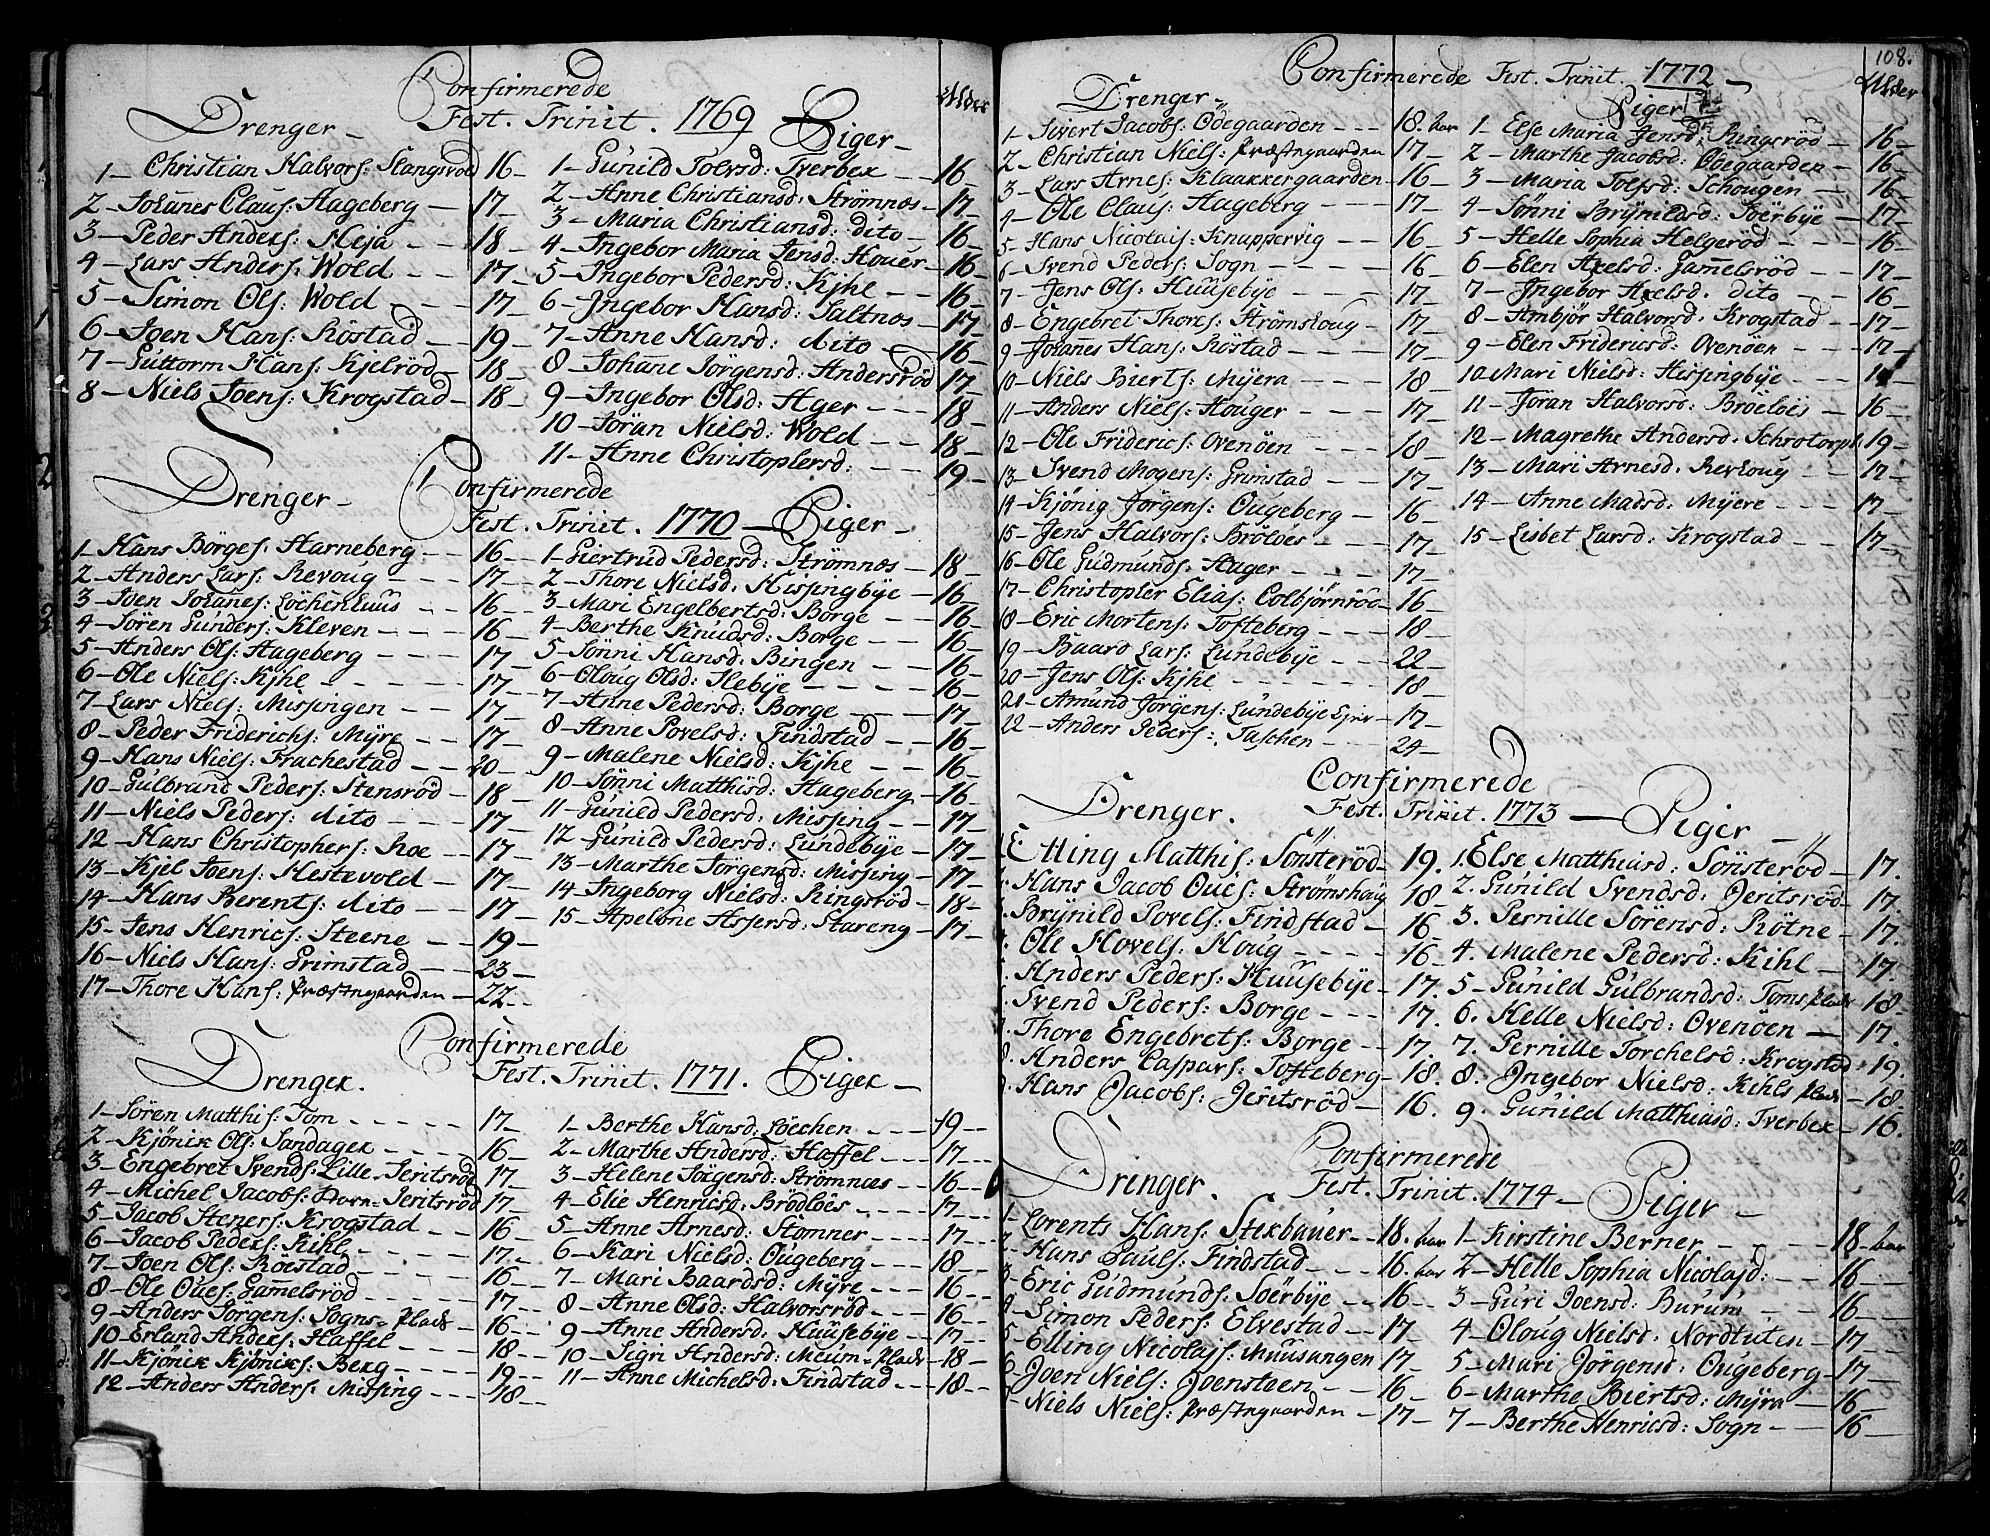 Confirmerede
Fest. Trinit. 1769
Alder
Drenger
1 Christian Halvors: Slangsvold 16
2 Johanes Claus: Hageberg 17
3 Peder Anders: Heja 18
4 Lars Anders: Wold 17
5 Simon Ols: Wold 17
6 Joen Hans: Rostad 19
7 Guttorm Hans: Kjelröd 18
8 Niels Joens: Krogstad 18
Piger
1 Gunild Tolvsd: Tverbek 16
2 Anne Christiansd: Strömnæs 17
3 Maria Christiansd: dito 16
4 Ingebor Maria Jensd: Houer 16
5 Ingebor Pedersd: Kjhl 16
6 Ingebor Hansd: Saltnæs 17
7 Anne Hansd: dito 16
8 Johane Jörgensd: Andersröd 17
9 Ingebor Olsd: Ager 18
10 Jöran Nielsd: Wold 18
11 Anne Christophersd: 19
Confirmerede
Fest. Trinit. 1770
Drenger
1 Hans Börges: Harneberg 16
2 Anders Lars: Revoug 17
3 Joen Johanes: Löchenhuus 16
4 Sören Gunders: Kleven 16
5 Anders Ols: Hageberg 17
6 Ole Niels: Kjhl 17
7 Lars Niels: Missingen 17
8 Peder Friderichs: Myre 17
9 Hans Niels: Frachestad 20
10 Gulbrand Peders: Stensröd 18
11 Niels Peders: dito 17
12 Hans Christophers: Roe 17
13 Kjel Joens: Hestevold 17
14 Hans Berents: dito 17
15 Jens Henrics: Steene 19
16 Niels Hans: Grimstad 23
17 Thore Hans: Præstegaarden 22
Piger
1 Giertrud Pedersd: Strömnæs 18
2 Thore Nielsd: Hissingbye 16
3 Mari Engelbertsd: Borge 16
4 Berthe Knudsd: Borge 16
5 Sönni Hansd: Bingen 16
6 Oloug Olsd: Ilebye 16
7 Anne Pedersd: Borge 17
8 Anne Povelsd: Findstad 16
9 Malene Nielsd: Kjhl 16
10 Sönni Matthisd: Hageberg 16
11 Gunild Pedersd: Missing 17
12 Gunild Pedersd: Lundebye 17
13 Marthe Jörgensd: Missing 17
14 Ingeborg Nielsd: Ringsröd 18
15 Apelone Assersd: Stareng 17
Confirmerede
Fest. Trinit. 1771.
Drenger.
1 Sören Matthis: Tom 17
2 Kjönik Ols: Sandager 16
3 Engebret Svends: Lille-Jeritsröd 17
4 Michel Jacobs: Horn-Jeritsröd 17
5 Jacob Steners: Krogstad 16
6 Jacob Peders: Kihl 17
7 Joen Ols: Röestad 16
8 Ole Oues: Gamelsröd 17
9 Anders Jörgens: Sogns-Plads 16
10 Erland Anders: Haffel 18
11 Kjönik Kjöniks: Berg 19
12 Anders Anders: Missing 18
Piger
1 Berthe Hansd: Löechen 19
2 Marthe Andersd: Haffel 17
3 Helene Jörgensd: Strömnæs 16
4 Elie Henricsd: Brödlöes 17
5 Anne Arnesd: Stomner 17
6 Kari Nielsd: Ougeberg 18
7 Mari Baardsd: Myre 16
8 Anne Olsd: Halvorsröd 16
9 Anne Andersd: Huusebye 17
10 Sigri Andersd: Meum-Plads 18
11 Anne Michelsd: Findstad 18
108.
Confirmerede Fest. Trinit. 1772
Alder
Drenger
1 Sivert Jacobs: Ödegaarden 18. Aar
2 Christian Niels: Præstegaarden 17
3 Lars Arnes: Klaakkergaarden 16
4 Ole Claus: Hageberg 17
5 Hans Nicolais: Knappervig 16
6 Svend Peders: Sogn 16
7 Jens Ols: Huusebye 17
8 Engebret Thores: Strömshoug 17
9 Johannes Hans: Rostad 17
10 Niels Bierts: Myera 18
11 Anders Niels: Houger 17
12 Ole Friderics: Ovenöen 18
13 Svend Mogens: Grimstad 17
14 Kjönig Jörgens: Ougeberg 16
15 Jens Halvors: Brölöes 17
16 Ole Gudmunds: Hager 17
17 Christopher Elias: Colbjörnröd 16
18 Eric Mortens: Tofteberg 18
19 Baard Lars: Lundebye 22
20 Jens Ols: Kjhl 18
21 Amund Jörgens: Lundebye Ejer 17
22 Anders Peders: Taschen 24
Piger
1 Else Maria Jensd: Ringsröd 16
2 Marthe Jacobsd: Ödegaarden 16
3 Maria Tolfsd: Schougen 16
4 Sönni Brynildsd: Soerbye 17
5 Helle Sophia Helgeröd 16
6 Elen Axelsd: Gamelsröd 17
7 Ingebor Axelsd. dito 16
8 Ambjör Halvorsd: Krogstad 17
9 Elen Fridericsd: Ovenöen 17
10 Mari Nielsd: Hissingbye
11 Jöran Halvorsd: Bröeloes 16
12 Magrethe Andersd: Schrotorph 19
13 Mari Arnesd. Revhoug 17
14 Anne Madsd: Myere 17
15 Lisbet Larsd: Krogstad 17
Confirmerede
Fest. Trinit. 1773
Drenger.
Elling Matthis: Sönsteröd 19.
Hans Jacob Oues: Strömshaug 18
Brynild Povels: Findstad 16
Ole Hovels: Houg 16
Anders Peders: Huusebye 17.
Svend Peders: Borge 17.
Thore Engebrets: Borge 17
8. Anders Caspars: Tofteberg 18.
Hans Jacobs: Jeritsröd 16.
Piger
1. Else Matthiasd: Sönsteröd 17.
2. Gunild Svendsd: Jeritsröd 17.
3. Pernille Sörensd: Rötne 17.
4. Malene Pedersd: Kihl 17
5 Gunild Gulbrandsd: Toms Plads 18
6. Helle Nielsd: Ovenöen 17.
7. Pernille Torchelsd: Krogstad 19.
8. Ingebor Nielsd: Kihls Plads 18
9. Gunild Matthiasd: Tverbek 16.
Confirmerede
Fest. Trinit. 1774
Drenger.
1 Lorents Hans: Stexbauer 18. Aar
2 Hans Pauls: Findstad 16. Aar
3 Eric Gudmunds: Soerbye 16
4 Simon Peders: Elvestad 17
5 Elling Nicolajs: Huusangen 17
6 Joen Niels: Joensteen 16
Niels Niels: Præstegaarden 17
Piger
1 Kirstine Berner 18 Aar
2 Helle Sophia Nicolajsd: 16
3 Guri Joensd: Burum 16
4 Oloug Nielsd: Nordtuten 17
5 Mari Jörgensd: Ougeberg 17
6 Marthe Biertsd: Myra 16
7 Berthe Henricsd: Sogn 16